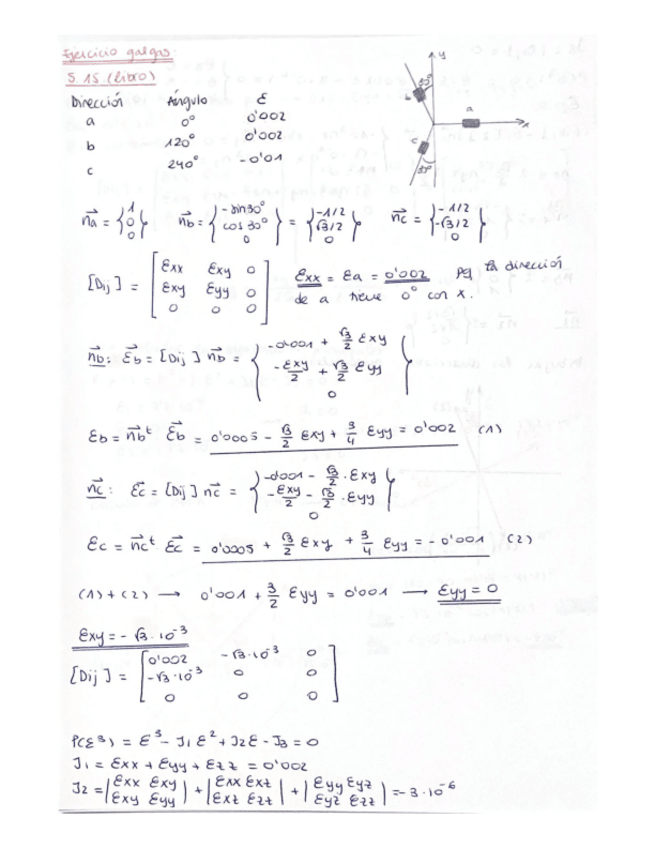 Ejercicio galgas:
5.15 (libro)
Dirección Ángulo ε
a 0° 0'002
b 120° 0'002
c 240° -0'01
y
30°
b
a
x
c
30°
n⃗a = {1 0 0} n⃗b = {-sin30° cos30° 0} = {-1/2 √3/2 0} n⃗c = {-1/2 -√3/2 0}
[Dij] = [εxx εxy 0; εxy εyy 0; 0 0 0] εxx = εa = 0'002 pq la dirección
de a tiene 0° con x.
n⃗b: ε⃗b = [Dij] n⃗b = {-0'001 + √3/2 εxy; -εxy/2 + √3/2 εyy; 0}
εb = n⃗bᵗ ε⃗b = 0'0005 - √3/2 εxy + 3/4 εyy = 0'002 (1)
n⃗c: ε⃗c = [Dij] n⃗c = {-0'001 - √3/2 · εxy; -εxy/2 - √3/2 · εyy; 0}
εc = n⃗cᵗ · ε⃗c = 0'0005 + √3/2 εxy + 3/4 εyy = -0'001 (2)
(1)+(2) → 0'001 + 3/2 εyy = 0'001 → εyy = 0
εxy = -√3·10⁻³
[Dij] = [0'002 -√3·10⁻³ 0; -√3·10⁻³ 0 0; 0 0 0]
P(ε³) = ε³ - J1 ε² + J2 ε - J3 = 0
J1 = εxx + εyy + εzz = 0'002
J2 = |εxx εxy; εxy εyy| + |εxx εxz; εxz εzz| + |εyy εyz; εyz εzz| = -3·10⁻⁶